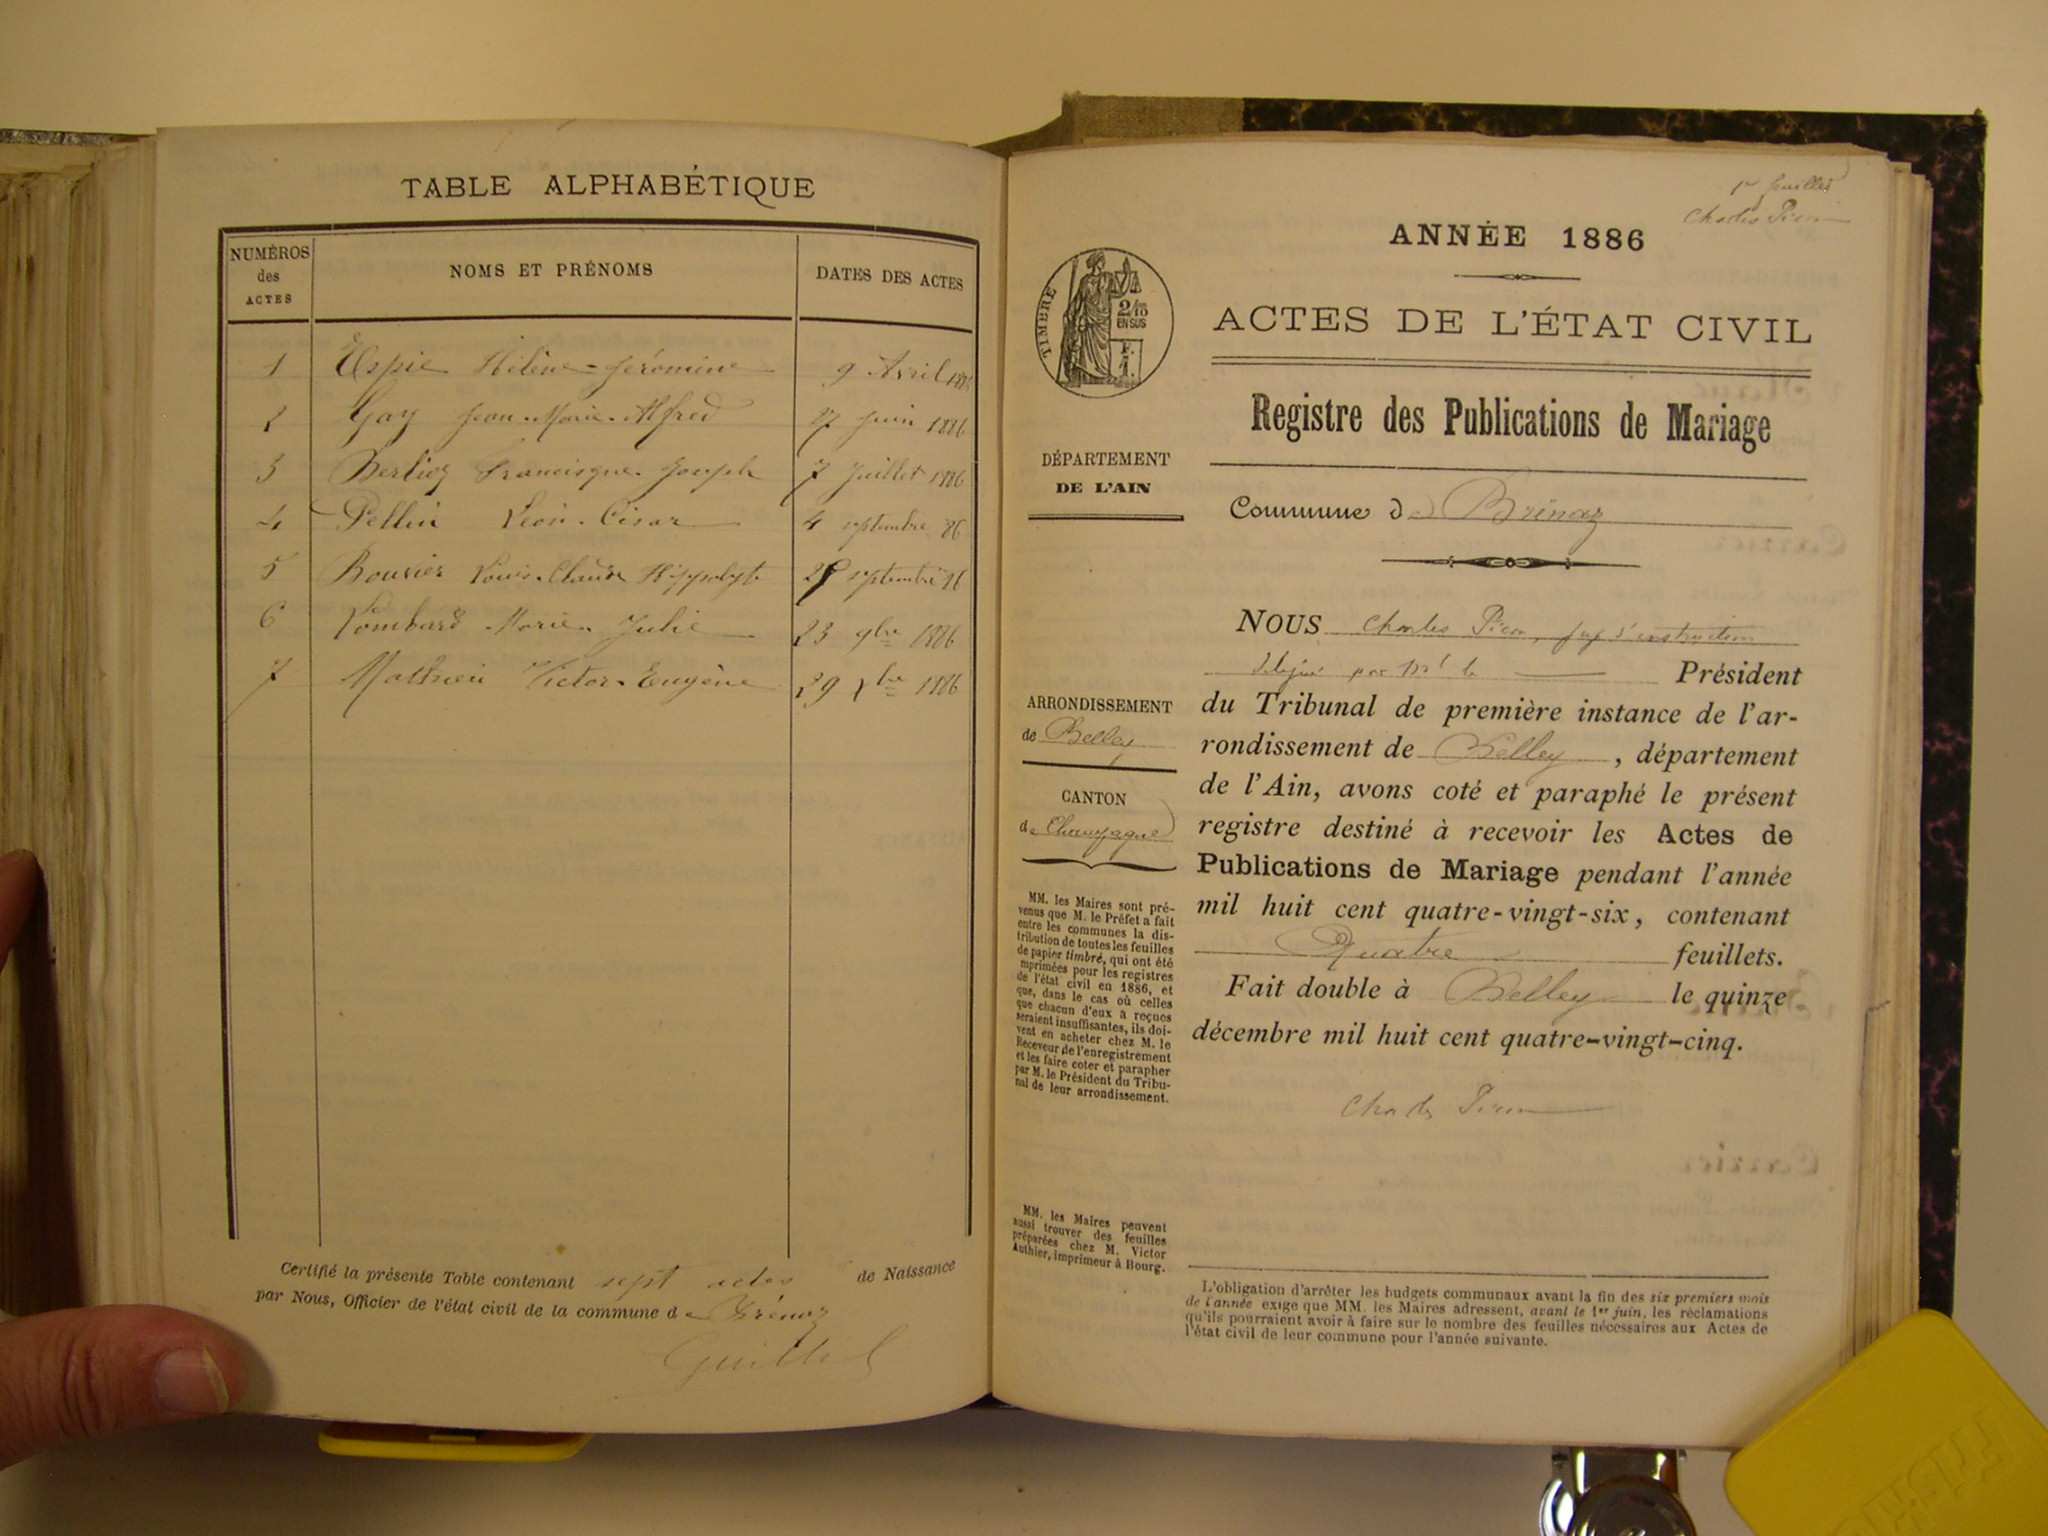 TABLE ALPHABÉTIQUE
NUMÉROS des ACTES
NOMS ET PRÉNOMS
DATES DES ACTES
1 Espie Hélène-Jéromine 9 Avril
2 Gay Jean-Marie-Alfred 27 Juin 1886
3 Berlioz Francisque-Joseph 7 Juillet 1886
4 Pellin Léon-César 4 septembre 86
5 Rouvier Louis-Claude Hippolyte septembre 86
6 Lombard Marie-Julie 23 9bre 1886
7 Mathieu Victor-Eugène 29 Xbre 1886
Certifié la présente Table contenant sept actes de Naissance
par Nous, Officier de l'état civil de la commune de Brénaz
1er feuillet
Charles Picon
ANNÉE 1886
TIMBRE
2/10
EN SUS
ACTES DE L'ÉTAT CIVIL
Registre des Publications de Mariage
DÉPARTEMENT
DE L'AIN
Commune de Brénaz
NOUS Charles Picon, juge d'instruction
délégué par Mr le Président
du Tribunal de première instance de l'ar-
rondissement de Belley, département
de l'Ain, avons coté et paraphé le présent
registre destiné à recevoir les Actes de
Publications de Mariage pendant l'année
mil huit cent quatre-vingt-six, contenant
Quatre feuillets.
Fait double à Belley le quinze
décembre mil huit cent quatre-vingt-cinq.
Charles Picon
ARRONDISSEMENT
de Belley
CANTON
de Champagne
MM. les Maires sont pré-
venus que M. le Préfet a fait
entre les communes la dis-
tribution de toutes les feuilles
de papier timbré, qui ont été
imprimées pour les registres
de l'état civil en 1886, et
que, dans le cas où celles
que chacun d'eux a reçues
seraient insuffisantes, ils doi-
vent en acheter chez M. le
Receveur de l'enregistrement
et les faire coter et parapher
par M. le Président du Tribu-
nal de leur arrondissement.
MM. les Maires peuvent
aussi trouver des feuilles
préparées chez M. Victor
Authier, imprimeur à Bourg.
L'obligation d'arrêter les budgets communaux avant la fin des six premiers mois
de l'année exige que MM. les Maires adressent, avant le 1er juin, les réclamations
qu'ils pourraient avoir à faire sur le nombre des feuilles nécessaires aux Actes de
l'état civil de leur commune pour l'année suivante.